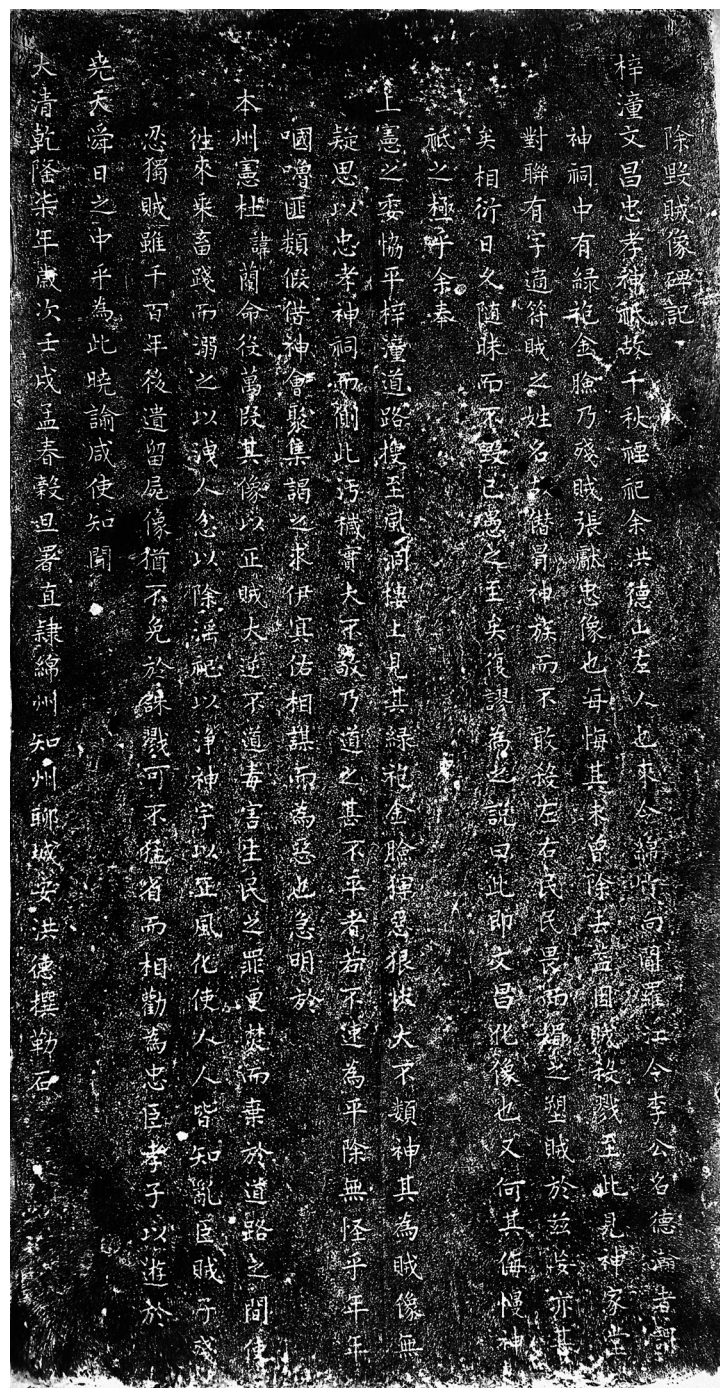 除毀賊像碑記
梓潼文昌忠孝神祗故千秋禋祀余洪德山左人也來令綿向聞羅江令李公名德瀚者
神祠中有綠袍金臉乃殘賊張獻忠像也每悔其未曾除去蓋因賊殺戮至此見神家堂
對聯有字適符賊之姓名故僣冒神族而不敢殺左右民民畏而揖之塑賊於茲妄亦甚
矣相衍日久隨昧而不毀已愚之至矣復謬為之說曰此即文昌化像也又何其侮慢神
祗之極乎余奉
上憲之委恊平梓潼道路搜至風洞樓上見其綠袍金臉獰惡狠狀大不類神其為賊像無
疑思以忠孝神祠而側此汚穢實大不敬乃道之甚不平者若不速為平除無怪乎年年
嘓嚕匪類假偕神會聚集謁之求伊冥佑相謀而為惡也急明於
本州憲杜諱蘭命役萬段其像以正賊大逆不道毒害生民之罪更焚而棄於道路之間使
徃來乘畜踐而溺之以洩人忿以除滛祀以淨神宇以正風化使人人皆知亂臣賊子
忍獨賊雖千百年後遺留屍像猶不免於誅戮可不猛省而相勸為忠臣孝子以遊於
堯天舜日之中乎為此曉諭咸使知聞
大清乾隆柒年歲次壬戌孟春穀旦署直隸綿州知州聊城安洪德撰勒石